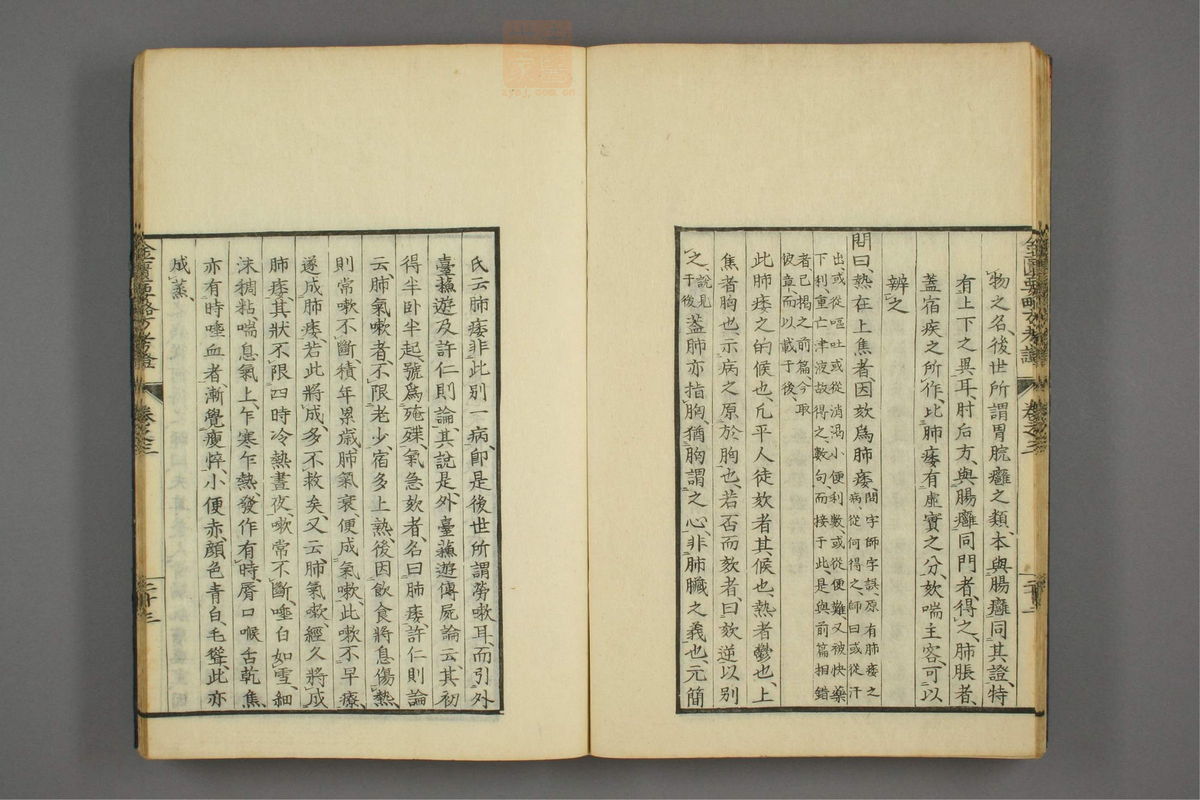 物之名、後世所謂胃脘癰之類、本與腸癰同其證、特
有上下之異耳、肘后方、與腸癰同門者、得之、肺脹者、
蓋宿疾之所作、比肺痿有虛實之分、欬喘主客、可以
辨之
問曰、熱在上焦者、因欬爲肺痿、問字師字誤、原有肺痿之
病、從何得之、師曰、或從汗
出、或從嘔吐、或從消渴、小便利數、或從便難、又被快藥
下利、重亡津液、故得之、數句、而接于此、是與前篇相錯
者、已揭之前篇、今取
彼章、而以載于後、
此肺痿之的候也、凡平人徒欬者、其候也、熱者鬱也、上
焦者胸也、示病之原於胸也、若否而欬者、曰欬逆以別
之、說見
于後
蓋肺亦指胸、猶胸謂之心、非肺臟之義也、元簡
氏云肺痿非此別一病、卽是後世所謂勞嗽耳、而引外
臺蘓遊及許仁則論、其說是、外臺蘓遊傳屍論云、其初
得半卧半起、號爲殗殜、氣急欬者、名曰肺痿、許仁則論
云、肺氣嗽者、不限老少、宿多上熱、後因飲食將息傷熱、
則常嗽不斷、積年累歲、肺氣衰、便成氣嗽、此嗽不早療、
遂成肺痿、若此將成、多不救矣、又云、肺氣嗽、經久將成
肺痿、其狀不限四時冷熱、晝夜嗽常不斷、唾白如雪、細
沫稠粘、喘息氣上、乍寒乍熱、發作有時、脣口喉舌乾焦、
亦有時唾血者、漸覺瘦悴、小便赤、顏色青白、毛聳、此亦
成蒸、
金匱要略方考證
卷之三
金匱要略方考證
卷之三